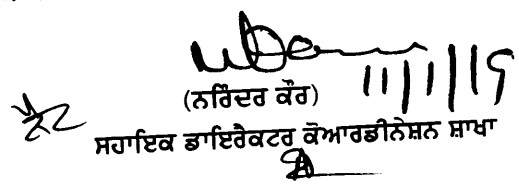 11/1/19
(ਨਰਿੰਦਰ ਕੌਰ)
ਸਹਾਇਕ ਡਾਇਰੈਕਟਰ ਕੋਆਰਡੀਨੇਸ਼ਨ ਸ਼ਾਖਾ